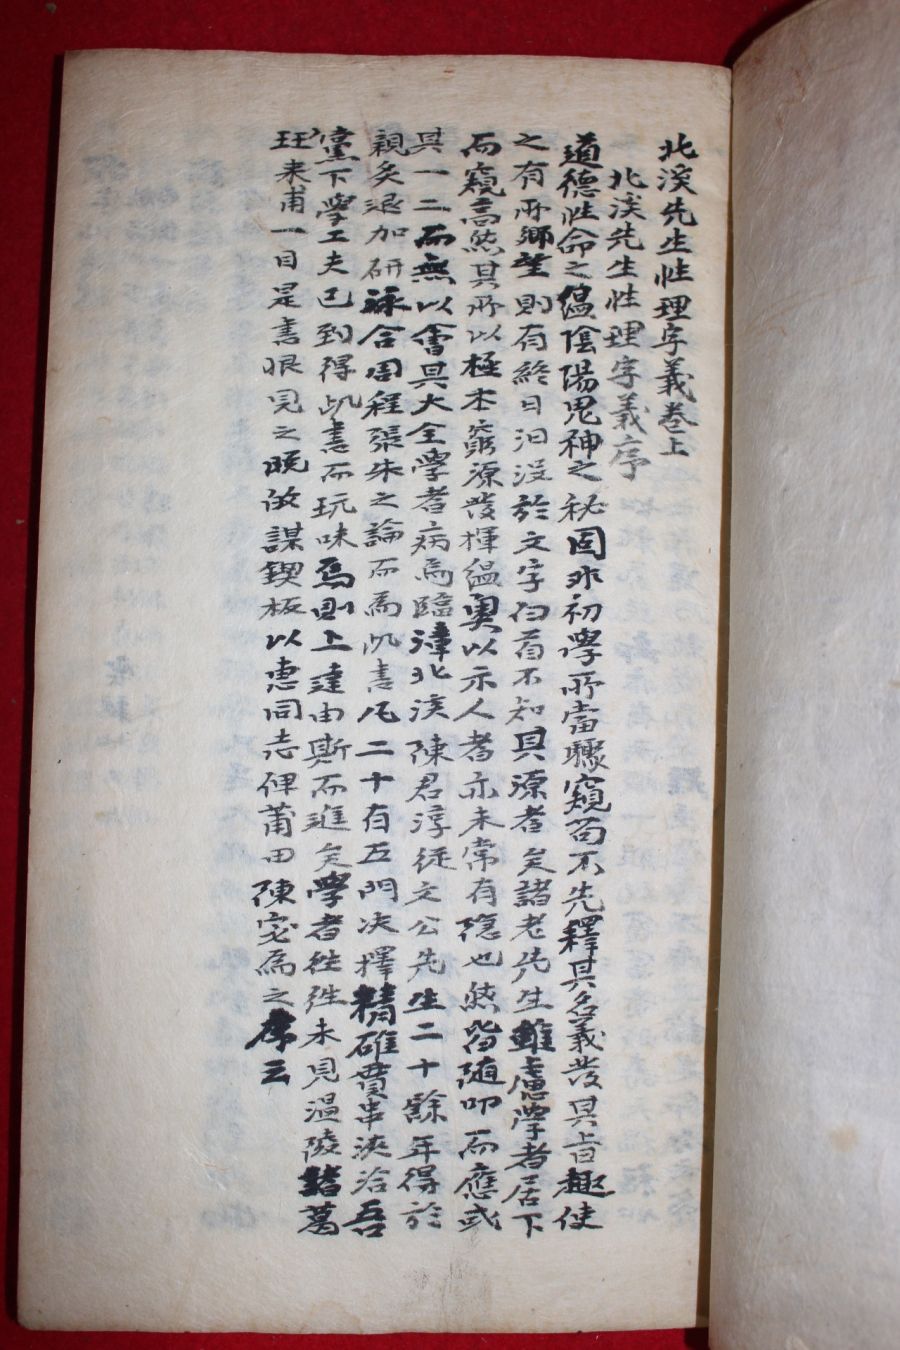 北溪先生性理字義卷上
北溪先生性理字義序
道德性命之縕陰陽鬼神之秘固非初學所當驟窺苟不先釋其名義發其旨趣使
之有所鄉望則有終日汩沒於文字句䓁不知其源者矣諸老先生雖慮學者居下
而窺高然其所以極本窮源發揮縕奧以示人者亦未常有隐也然皆随叩而應或
具一二而無以會其大全學者病焉臨漳北溪陳君淳從文公先生二十餘年得於
親炙退加研泳合周程張朱之論而爲此書凡二十有五門決擇精確貫串浹洽吾
黨下學工夫已到得此書而玩味焉則上達由斯而進矣學者往往未見温陵諸葛
珏来甫一日是書眼見之晚敀謀鍥板以惠同志俾莆田陳宓爲之序云